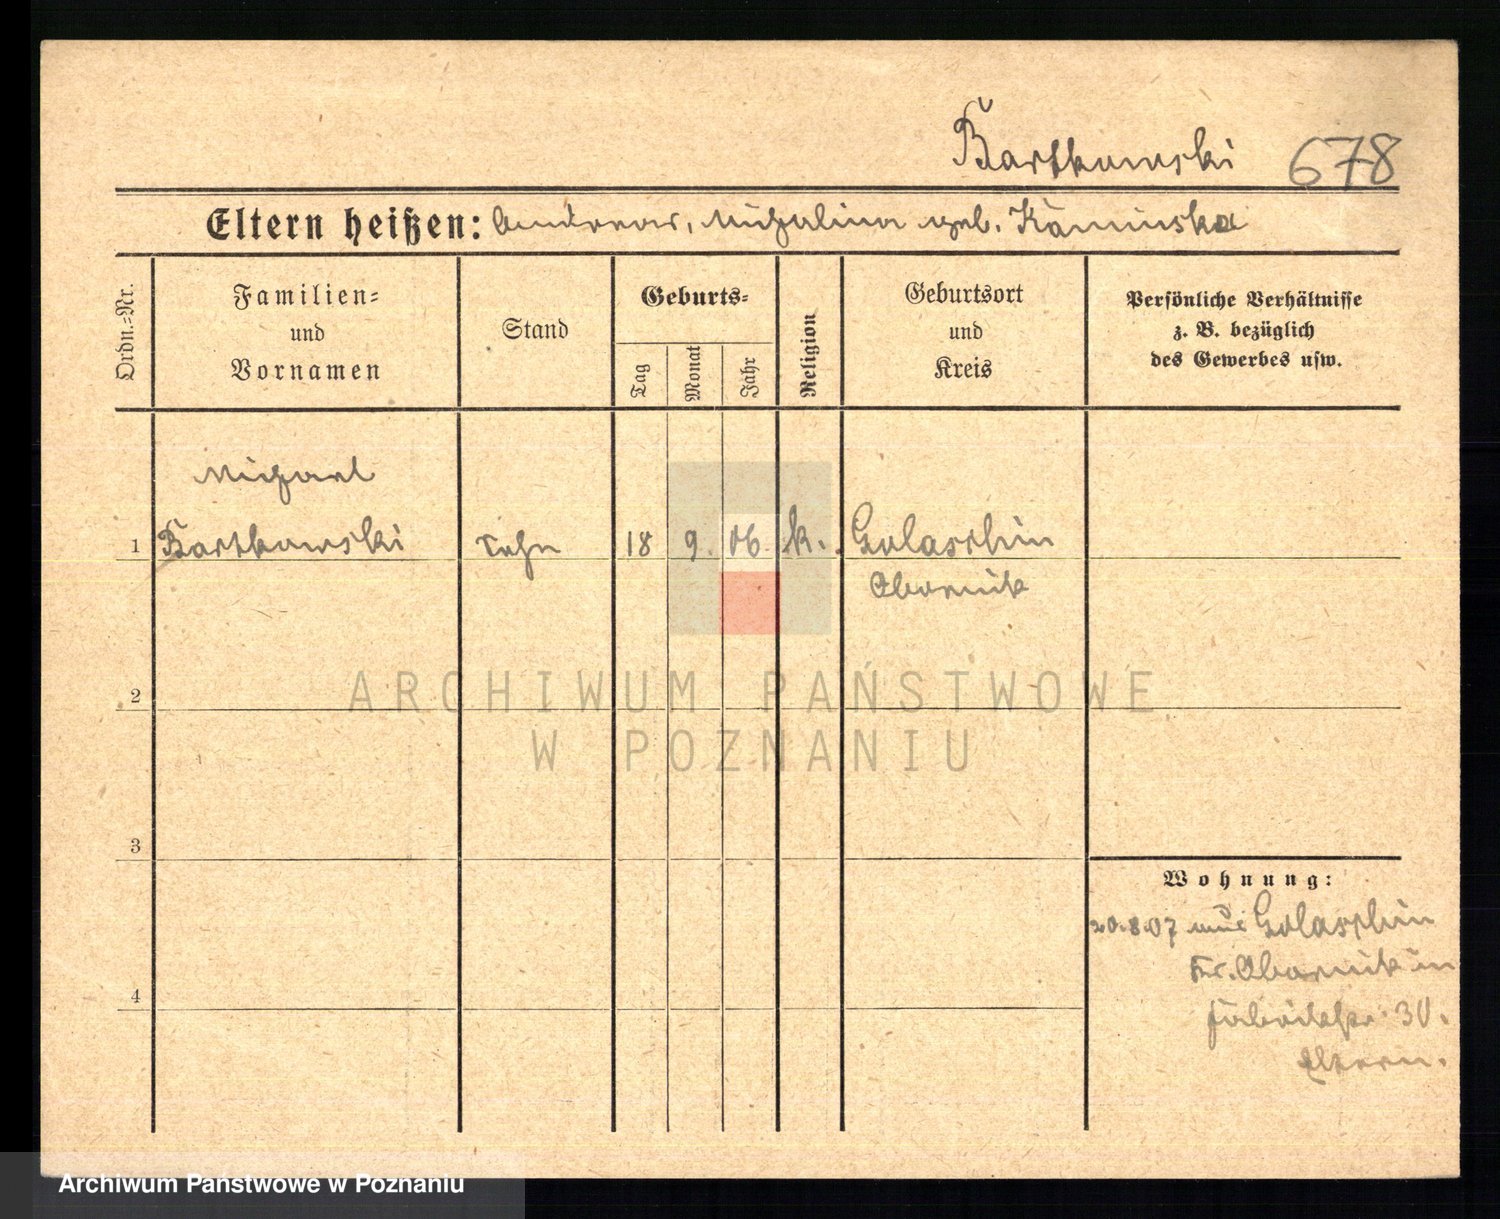 Bartkowski 678
Eltern heißen: Andreas, Michalina geb. Kaminska
Ordn.=Nr.
Familien=
und
Vornamen
Stand
Geburts=
Tag
Monat
Jahr
Religion
Geburtsort
und
Kreis
Persönliche Verhältnisse
z. B. bezüglich
des Gewerbes usw.
Michael
1 Bartkowski Sohn 18 9. 06. k. Golaschin
Obornik
ARCHIWUM PAŃSTWOWE
W POZNANIU
2
3
4
Wohnung:
20.8.07 aus Golaschin
Kr. Obornik in
30.
Eltern.
Archiwum Państwowe w Poznaniu